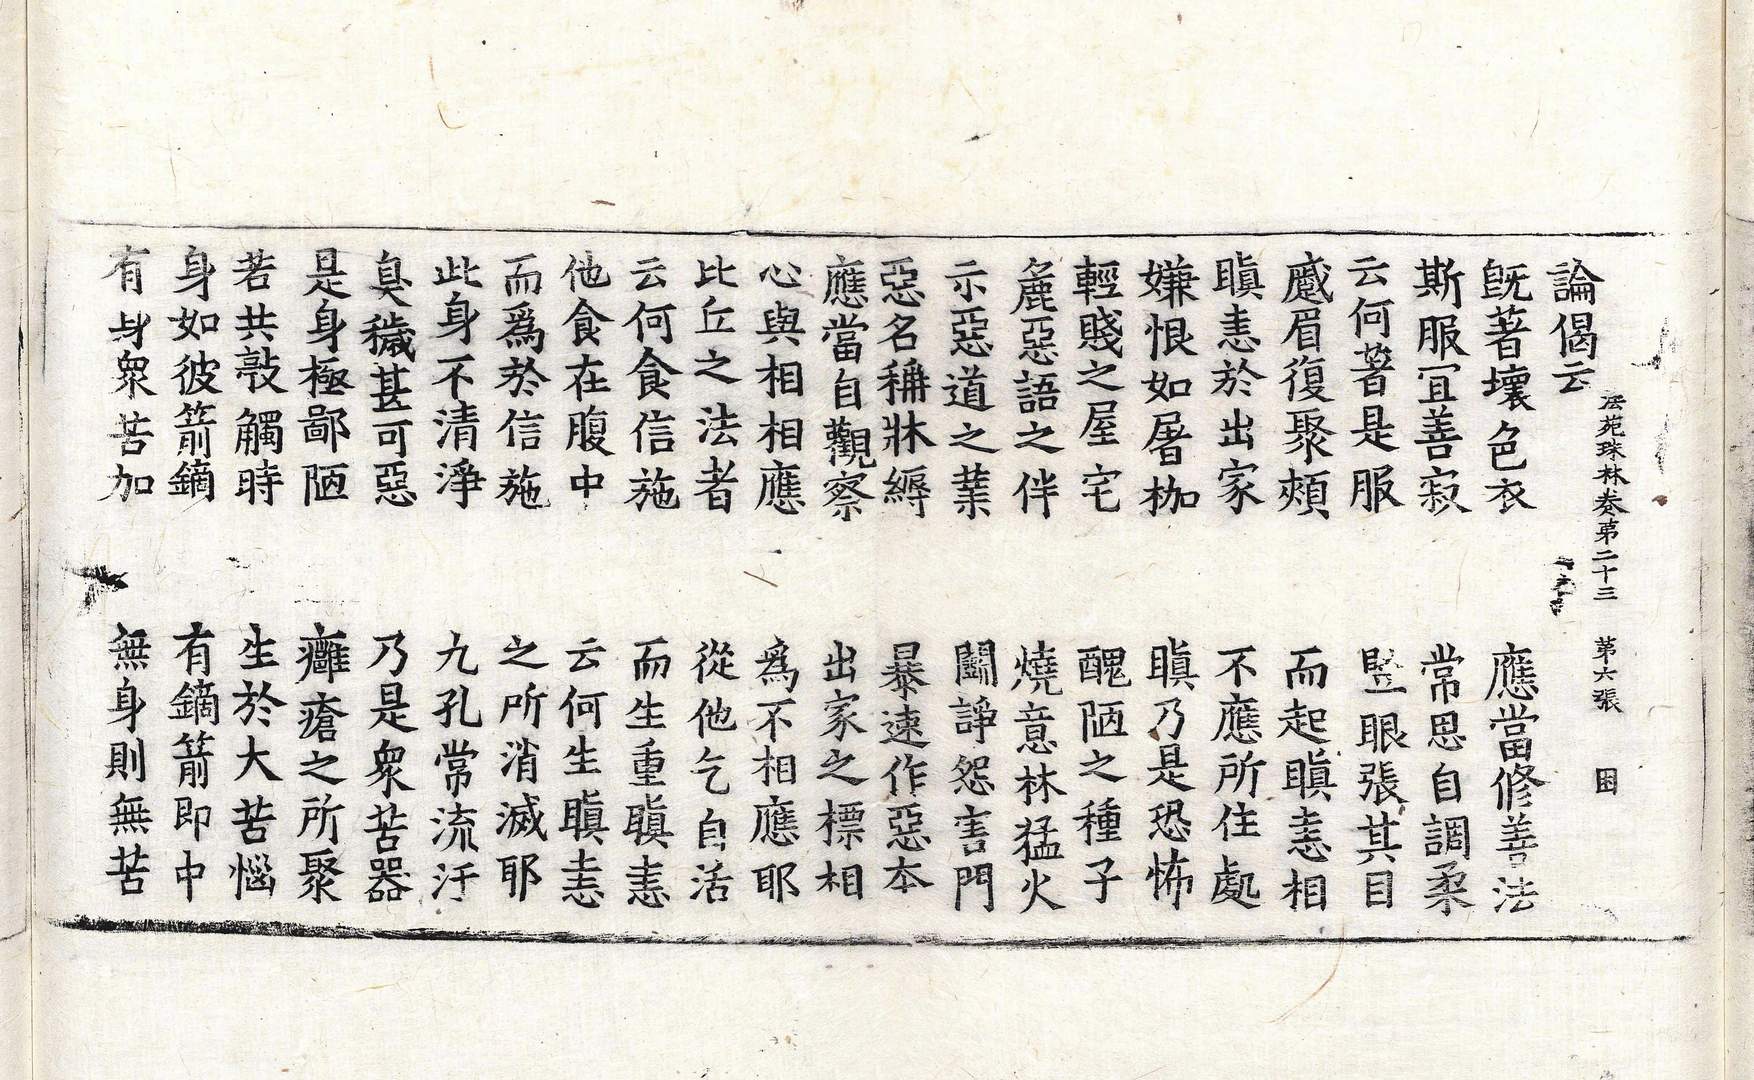 論偈云
法苑珠林卷第二十三 第六張 困
旣著壞色衣 應當修善法
斯服宜善寂 常思自調柔
云何著是服 竪眼張其目
蹙眉復聚頰 而起瞋恚相
瞋恚於出家 不應所住處
嫌恨如屠枷 瞋乃是恐怖
輕賤之屋宅 醜陋之種子
麁惡語之伴 燒意林猛火
示惡道之業 鬪諍怨害門
惡名稱牀縟 暴速作惡本
應當自觀察 出家之標相
心與相相應 爲不相應耶
比丘之法者 從他乞自活
云何食信施 而生重瞋恚
他食在腹中 云何生瞋恚
而爲於信施 之所消滅耶
此身不清淨 九孔常流汙
臭穢甚可惡 乃是衆苦器
是身極鄙陋 癰瘡之所聚
若共敲觸時 生於大苦惱
身如彼箭鏑 有鏑箭即中
有身衆苦加 無身則無苦